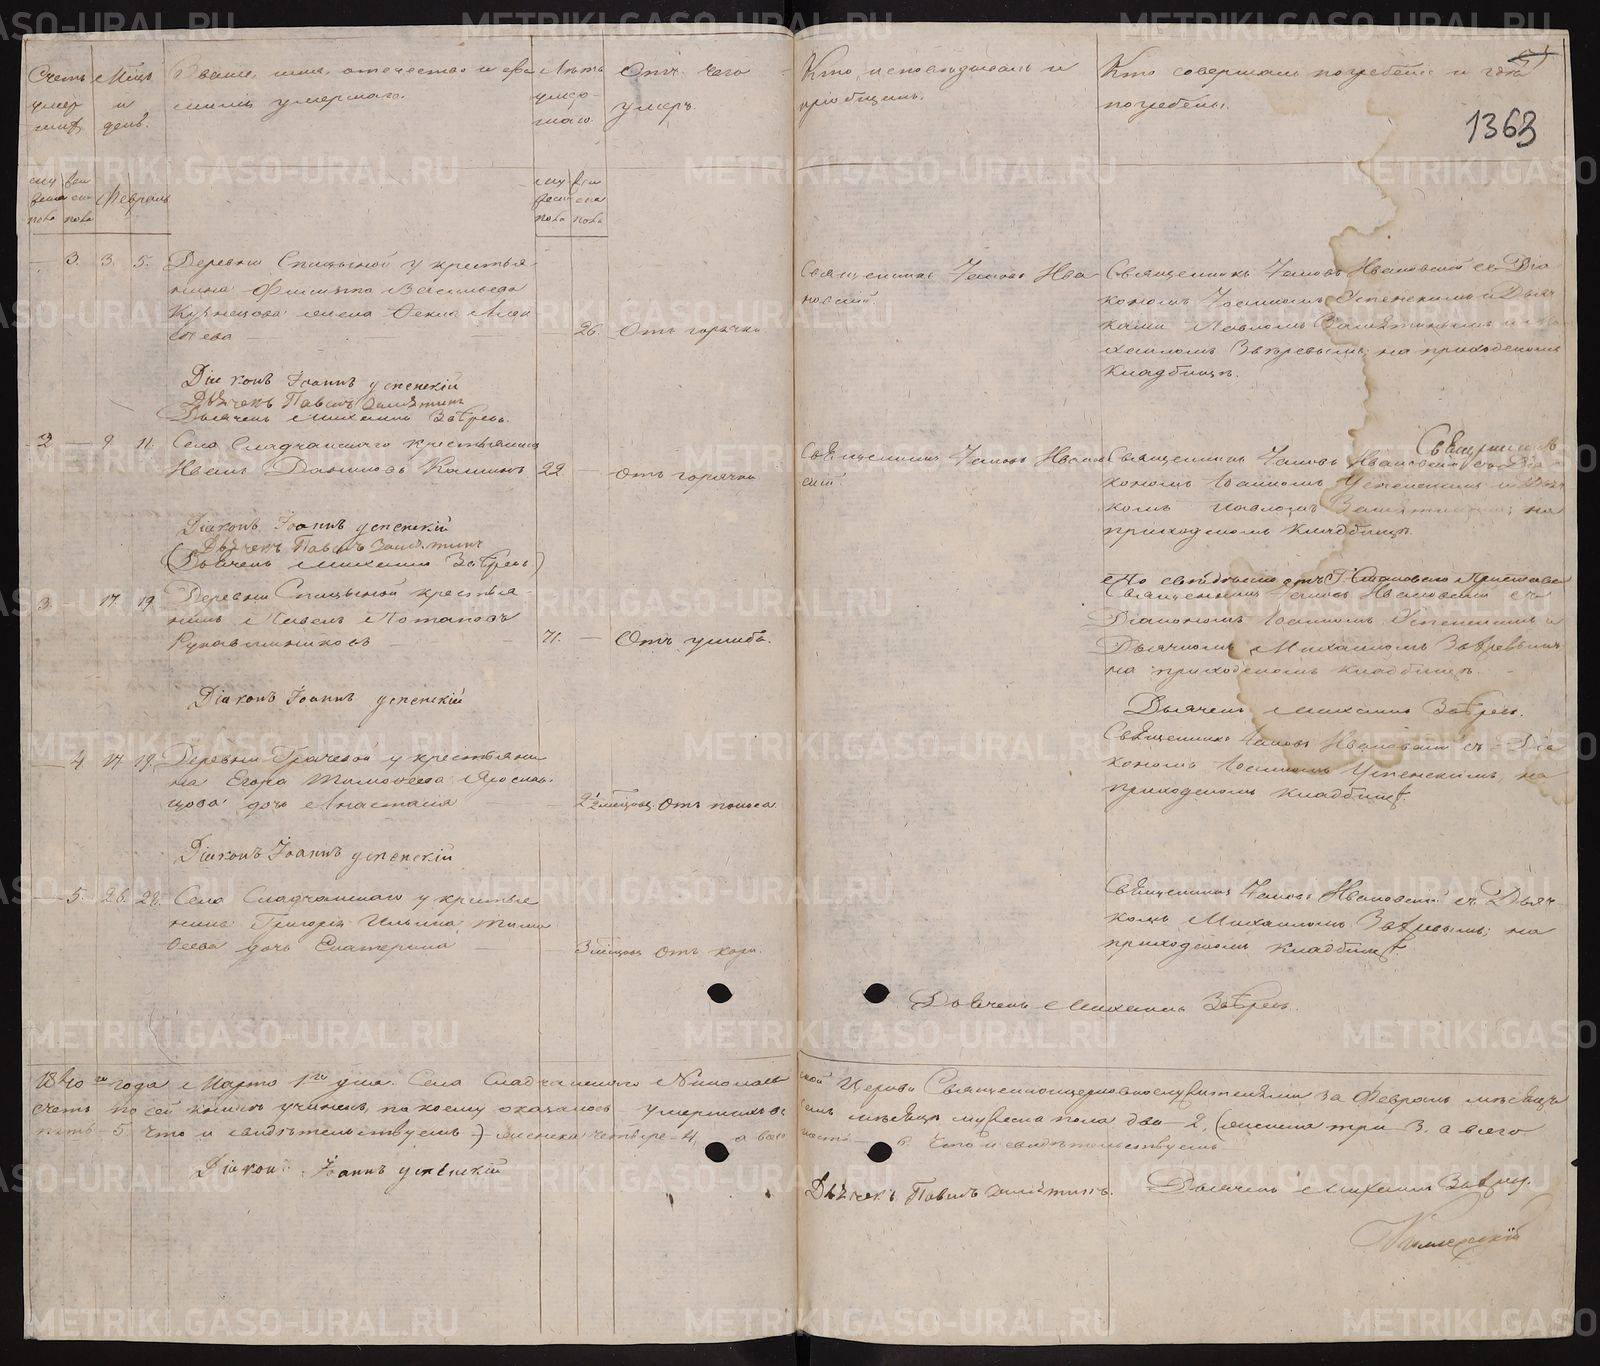 Счетъ
умер
шихъ
Мѣсяцъ
и
день.
Званіе, имя, отечество и фа
милія умершаго.
Лѣта
умер-
шаго.
Отъ чего
умеръ.
Кто исповѣдывалъ и
пріобщалъ.
Кто совершалъ погребеніе и гдѣ
погребены.
1363
Февраль
3. 3. 5. Деревни Спицыной у крестья-
нина Филиппа Васильева
Кузнецова жена Фекла Алек
сѣева 26. Отъ горячки
Священникъ Іаковъ Ива
новскій.
Священникъ Іаковъ Ивановскій съ Діа
кономъ Іоанномъ Успенскимъ и Дьяч
ками Павломъ Замятинымъ и Ми
хаиломъ Звѣревымъ; на приходскомъ
кладбищѣ.
Діаконъ Іоаннъ Успенскій
Дьячекъ Павелъ Замятинъ
Дьячекъ Михаилъ Звѣревъ.
2 9 11. Села Сладчанскаго крестьянинъ
Иванъ Даниловъ Калининъ 22 отъ горячки
Священникъ Іаковъ Иванов
скій
Священникъ
Священникъ Іаковъ Ивановскій съ Діа
кономъ Іоанномъ Успенскимъ и Дьяч
комъ Павломъ Замятинымъ; на
приходскомъ кладбищѣ.
Діаконъ Іоаннъ Успенскій
Дьячекъ Павелъ Замятинъ
(Дьячекъ Михаилъ Звѣревъ)
3. 17. 19. Деревни Спицыной крестья-
нинъ Павелъ Потаповъ
Рукавишниковъ 71. Отъ ушиба.
Священникъ Іаковъ Ивановскій съ
Діакономъ Іоанномъ Успенскимъ и
Дьячкомъ Михаиломъ Звѣревымъ
на приходскомъ кладбищѣ.
Діаконъ Іоаннъ Успенскій
Дьячекъ Михаилъ Звѣревъ.
4 17 19. Деревни Грачевой у крестьяни
на Егора Тимофеева Ярослав
цова дочь Анастасія 2½ мѣсяцовъ Отъ поноса
Священникъ Іаковъ Ивановскій съ Діа
кономъ Іоанномъ Успенскимъ, на
приходскомъ кладбищѣ.
Діаконъ Іоаннъ Успенскій
5. 26. 28. Села Сладчанскаго у крестья
нина Григорія Ильина Тимо
феева дочь Екатерина 3 мѣсяцовъ Отъ кори.
Священникъ Іаковъ Ивановскій съ Дьяч
комъ Михаиломъ Звѣревымъ; на
приходскомъ кладбищѣ.
Дьячекъ Михаилъ Звѣревъ.
1840го года Марта 1го дня. Села Сладчанскаго Николаев ской Церкви Священноцерковнослужителями за Февраль мѣсяцъ
счетъ по сей книгѣ учиненъ, по коему оказалось умершихъ въ семъ мѣсяцѣ мужеска пола два 2, (женска три 3. а всего
пять 5 Что и свидѣтельствуемъ) женска четыре 4, а всего шесть 6 Что и свидѣтельствуемъ
Діаконъ Іоаннъ Успенскій
Дьячекъ Павелъ Замятинъ. Дьячекъ Михаилъ Звѣревъ.
METRIKI.GASO-URAL.RU